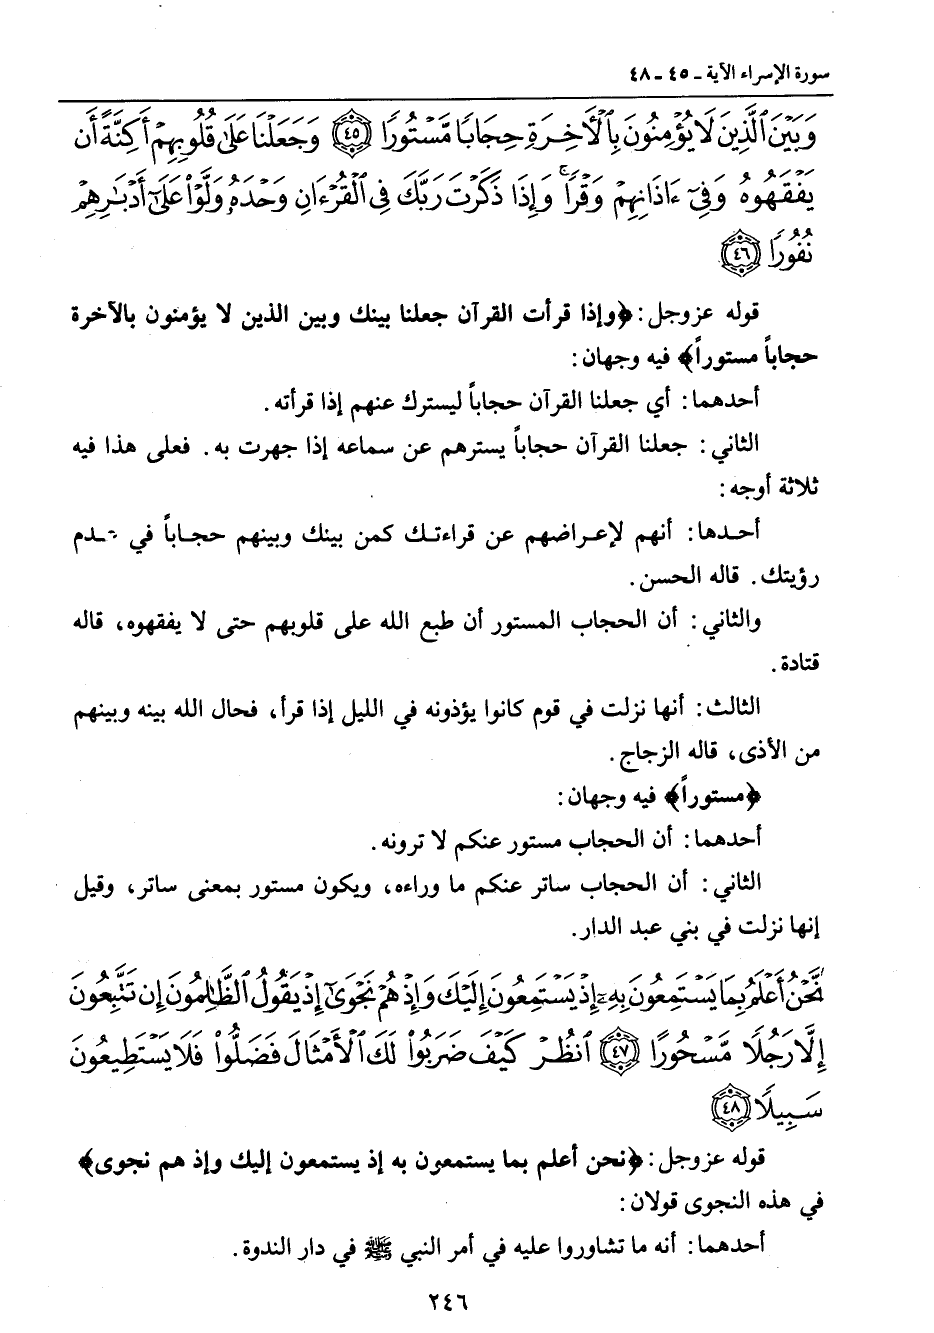 سورة الإسراء الآية - ٤٥ - ٤٨
وَبَيْنَ ٱلَّذِينَ لَا يُؤْمِنُونَ بِٱلْأَخِرَةِ حِجَابًا مَّسْتُورًا ٤٥ وَجَعَلْنَا عَلَىٰ قُلُوبِهِمْ أَكِنَّةً أَن
يَفْقَهُوهُ وَفِىٓ ءَاذَانِهِمْ وَقْرًا ۚ وَإِذَا ذَكَرْتَ رَبَّكَ فِى ٱلْقُرْءَانِ وَحْدَهُۥ وَلَّوْا۟ عَلَىٰٓ أَدْبَـٰرِهِمْ
نُفُورًا ٤٦
قوله عز وجل: ﴿وإذا قرأت القرآن جعلنا بينك وبين الذين لا يؤمنون بالآخرة
حجاباً مستوراً﴾ فيه وجهان:
أحدهما: أي جعلنا القرآن حجاباً ليسترك عنهم إذا قرأته.
الثاني: جعلنا القرآن حجاباً يسترهم عن سماعه إذا جهرت به. فعلى هذا فيه
ثلاثة أوجه:
أحدها: أنهم لإعراضهم عن قراءتك كمن بينك وبينهم حجاباً في
رؤيتك. قاله الحسن.
والثاني: أن الحجاب المستور أن طبع الله على قلوبهم حتى لا يفقهوه، قاله
قتادة.
الثالث: أنها نزلت في قوم كانوا يؤذونه في الليل إذا قرأ، فحال الله بينه وبينهم
من الأذى، قاله الزجاج.
﴿مستوراً﴾ فيه وجهان:
أحدهما: أن الحجاب مستور عنكم لا ترونه.
الثاني: أن الحجاب ساتر عنكم ما وراءه، ويكون مستور بمعنى ساتر، وقيل
إنها نزلت في بني عبد الدار.
نَّحْنُ أَعْلَمُ بِمَا يَسْتَمِعُونَ بِهِۦٓ إِذْ يَسْتَمِعُونَ إِلَيْكَ وَإِذْ هُمْ نَجْوَىٰٓ إِذْ يَقُولُ ٱلظَّـٰلِمُونَ إِن تَتَّبِعُونَ
إِلَّا رَجُلًا مَّسْحُورًا ٤٧ ٱنظُرْ كَيْفَ ضَرَبُوا۟ لَكَ ٱلْأَمْثَالَ فَضَلُّوا۟ فَلَا يَسْتَطِيعُونَ
سَبِيلًا ٤٨
قوله عز وجل: ﴿نحن أعلم بما يستمعون به إذ يستمعون إليك وإذ هم نجوى﴾
في هذه النجوى قولان:
أحدهما: أنه ما تشاوروا عليه في أمر النبي ﷺ في دار الندوة.
٢٤٦